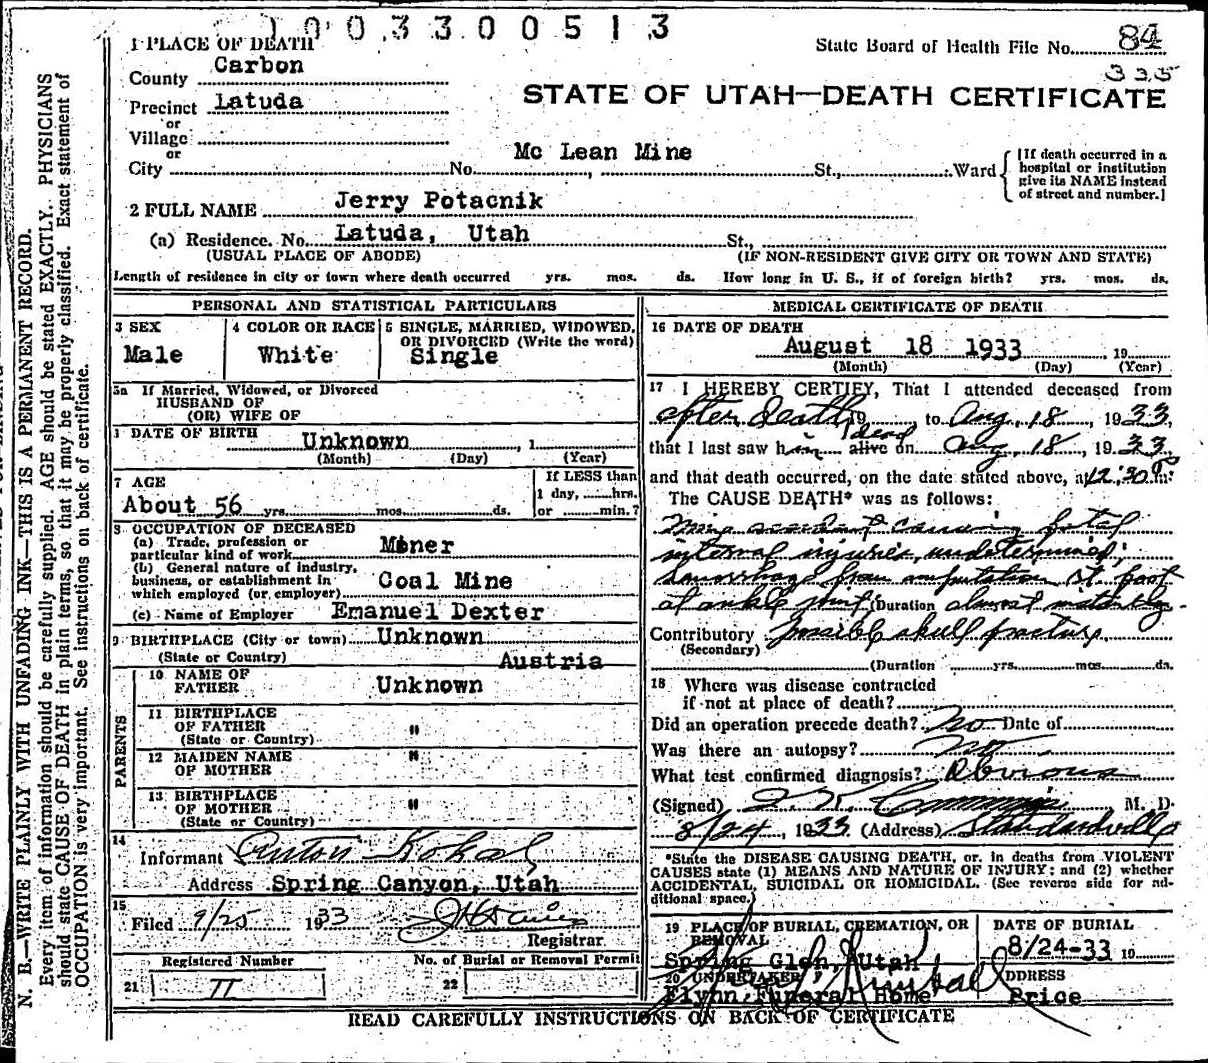 1003300513
State Board of Health File No. 84
335
1 PLACE OF DEATH
County Carbon
Precinct Latuda
or
Village
or
City No. Mc Lean Mine St., Ward
STATE OF UTAH—DEATH CERTIFICATE
[If death occurred in a
hospital or institution
give its NAME instead
of street and number.]
2 FULL NAME Jerry Potacnik
(a) Residence. No. Latuda, Utah St.,
(USUAL PLACE OF ABODE) (IF NON-RESIDENT GIVE CITY OR TOWN AND STATE)
Length of residence in city or town where death occurred yrs. mos. ds. How long in U. S., if of foreign birth? yrs. mos. ds.
PERSONAL AND STATISTICAL PARTICULARS
3 SEX
Male
4 COLOR OR RACE
White
5 SINGLE, MARRIED, WIDOWED,
OR DIVORCED (Write the word)
Single
5a If Married, Widowed, or Divorced
HUSBAND OF
(OR) WIFE OF
DATE OF BIRTH Unknown, 1
(Month) (Day) (Year)
7 AGE
About 56 yrs. mos. ds.
If LESS than
1 day, hrs.
or min.?
8 OCCUPATION OF DECEASED
(a) Trade, profession or
particular kind of work Miner
(b) General nature of industry,
business, or establishment in
which employed (or employer) Coal Mine
(c) Name of Employer Emanuel Dexter
9 BIRTHPLACE (City or town) Unknown
(State or Country) Austria
PARENTS
10 NAME OF
FATHER Unknown
11 BIRTHPLACE
OF FATHER "
(State or Country)
12 MAIDEN NAME
OF MOTHER "
13 BIRTHPLACE
OF MOTHER "
(State or Country)
14
Informant Anton Kokal
Address Spring Canyon, Utah
15
Filed 9/25 1933
Registrar
Registered Number
21 11
No. of Burial or Removal Permit
22
MEDICAL CERTIFICATE OF DEATH
16 DATE OF DEATH
August 18 1933, 19
(Month) (Day) (Year)
17 I HEREBY CERTIFY, That I attended deceased from
after death, 19 to Aug. 18, 1933,
that I last saw him alive dead on Aug. 18, 1933
and that death occurred, on the date stated above, at 12:30 P m.
The CAUSE DEATH* was as follows:
Mine accident causing fatal
internal injuries, undetermined;
hemorrhage from amputation rt. foot
at ankle joint (Duration almost instantly.
Contributory possible skull fracture
(Secondary)
(Duration yrs. mos. ds.
18 Where was disease contracted
if not at place of death?
Did an operation precede death? No Date of
Was there an autopsy? No
What test confirmed diagnosis? Obvious
(Signed) Cummings M. D.
8/24, 1933 (Address) Standardville
*State the DISEASE CAUSING DEATH, or, in deaths from VIOLENT
CAUSES state (1) MEANS AND NATURE OF INJURY; and (2) whether
ACCIDENTAL, SUICIDAL OR HOMICIDAL. (See reverse side for ad-
ditional space.)
19 PLACE OF BURIAL, CREMATION, OR
REMOVAL
Spring Glen, Utah
DATE OF BURIAL
8/24-33 19
20 UNDERTAKER
Flynn Funeral Home
ADDRESS
Price
READ CAREFULLY INSTRUCTIONS ON BACK OF CERTIFICATE
N. B.—WRITE PLAINLY WITH UNFADING INK—THIS IS A PERMANENT RECORD.
Every item of information should be carefully supplied. AGE should be stated EXACTLY. PHYSICIANS
should state CAUSE OF DEATH in plain terms, so that it may be properly classified. Exact statement of
OCCUPATION is very important. See instructions on back of certificate.